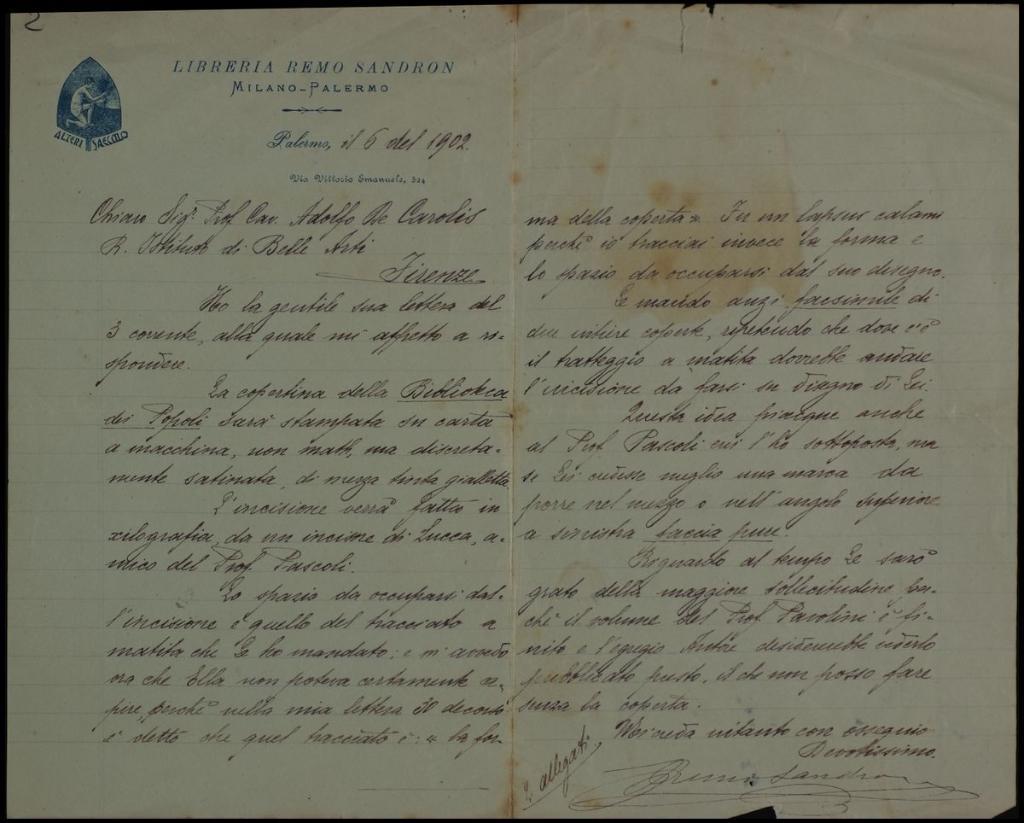 2
LIBRERIA REMO SANDRON
MILANO-PALERMO
ALTERI SAECULO
Palermo, il 6 del 1902.
Via Vittorio Emanuele, 324
Chiaro Sigʳ Prof. Cav. Adolfo De Carolis
R. Istituto di Belle Arti
Firenze
Ho la gentile sua lettera del
3 corrente, alla quale mi affretto a ri-
spondere.
La copertina della Biblioteca
dei Popoli sarà stampata su carta
a macchina, non math, ma discreta-
mente satinata, di mezza tinta gialletta.
L'incisione verrà fatta in
xilografia, da un incisore di Lucca, a-
mico del Prof. Pascoli.
Lo spazio da occuparsi dal-
l'incisione è quello del tracciato a
matita che Le ho mandato; e mi avvedo
ora che Ella non poteva certamente ca-
pire, perchè nella mia lettera 30 decorso
è detto che quel tracciato è: « la for-
ma della coperta ». Fu un lapsus calami
perchè io tracciai invece la forma e
lo spazio da occuparsi dal suo disegno.
Le mando anzi facsimile di
due intiere coperte, ripetendo che dove c'è
il tratteggio a matita dovrebbe andare
l'incisione da farsi su disegno di Lei.
Questa idea piacque anche
al Prof. Pascoli cui l'ho sottoposta, ma
se Lei crede meglio una marca da
porre nel mezzo o nell'angolo superiore
a sinistra faccia pure.
Riguardo al tempo Le sarò
grato della maggiore sollecitudine, per-
chè il volume del Prof. Pavolini è fi-
nito e l'egregio Autore desidererebbe vederlo
pubblicato presto, il che non posso fare
senza la coperta.
Mi creda intanto con ossequio
Devotissimo
Remo Sandron
2 allegati